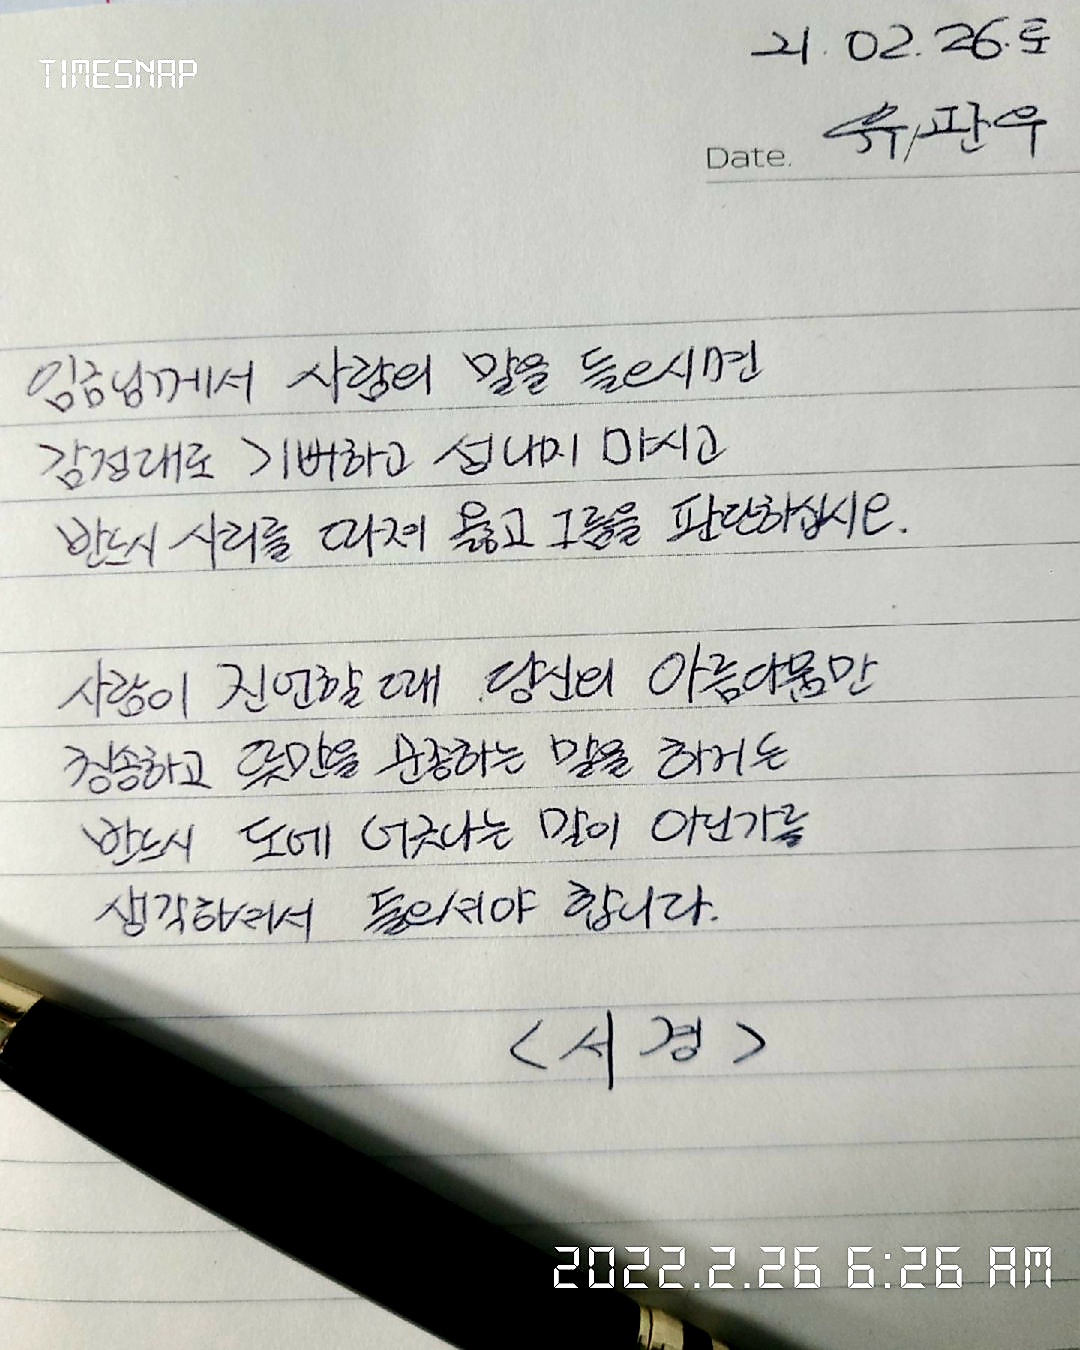 TIMESNAP
21.02.26.토
Date. 유/판우
임금님께서 사람의 말을 들으시면
감정대로 기뻐하고 섭내지 마시고
반드시 사리를 따져 옳고 그름을 판단하십시오.
사람이 진언할 때 당신의 아름다움만
칭송하고 뜻만을 순종하는 말을 하거든
반드시 도에 어긋나는 말이 아닌가를
생각하셔서 들으셔야 합니다.
<서경>
2022.2.26 6:26 AM